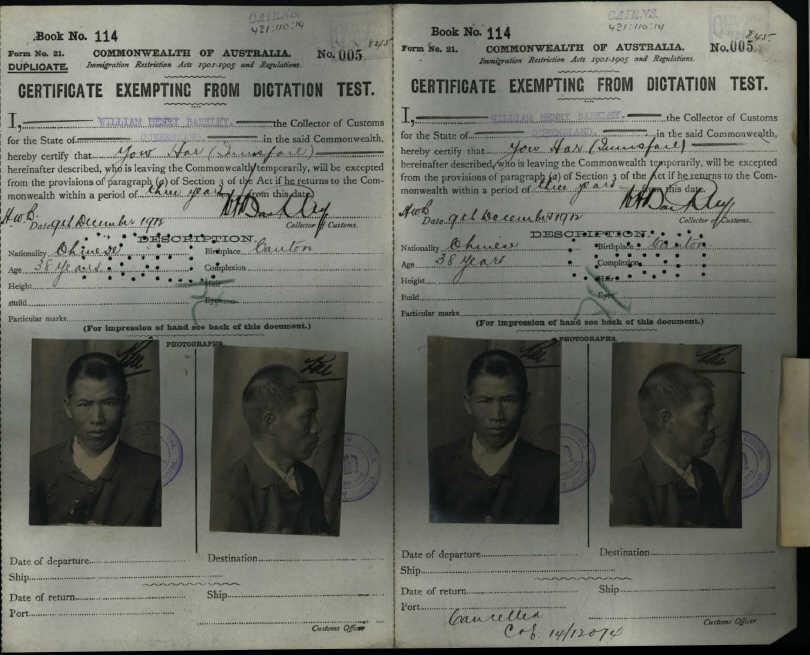 CAIRNS
421:110:14
Book No. 114
Form No. 21.
COMMONWEALTH OF AUSTRALIA.
No. 005
845
DUPLICATE.
Immigration Restriction Acts 1901-1905 and Regulations.
CERTIFICATE EXEMPTING FROM DICTATION TEST.
I, WILLIAM HENRY BARKLEY. the Collector of Customs
for the State of QUEENSLAND. in the said Commonwealth,
hereby certify that Yow Har (Innisfail)
hereinafter described, who is leaving the Commonwealth temporarily, will be excepted
from the provisions of paragraph (a) of Section 3 of the Act if he returns to the Com-
monwealth within a period of three years from this date.
W H Barkley
Date 9th December 1912
Collector of Customs.
DESCRIPTION.
Nationality Chinese Birthplace Canton
Age 38 Years Complexion
Height Hair
Build Eyes
Particular marks
(For impression of hand see back of this document.)
PHOTOGRAPHS
Date of departure Destination
Ship
Date of return Ship
Port
Customs Officer
CAIRNS.
421:110:14
Book No. 114
845
Form No. 21.
COMMONWEALTH OF AUSTRALIA.
No. 005
Immigration Restriction Acts 1901-1905 and Regulations.
CERTIFICATE EXEMPTING FROM DICTATION TEST.
I, WILLIAM HENRY BARKLEY. the Collector of Customs
for the State of QUEENSLAND. in the said Commonwealth,
hereby certify that Yow Har (Innisfail)
hereinafter described, who is leaving the Commonwealth temporarily, will be excepted
from the provisions of paragraph (a) of Section 3 of the Act if he returns to the Com-
monwealth within a period of three years from this date.
W H Barkley
Date 9th December 1912
Collector of Customs.
DESCRIPTION.
Nationality Chinese Birthplace Canton
Age 38 Years Complexion
Height Hair
Build Eyes
Particular marks
(For impression of hand see back of this document.)
PHOTOGRAPHS
Date of departure Destination
Ship
Date of return Ship
Port
Cancelled
Customs Officer